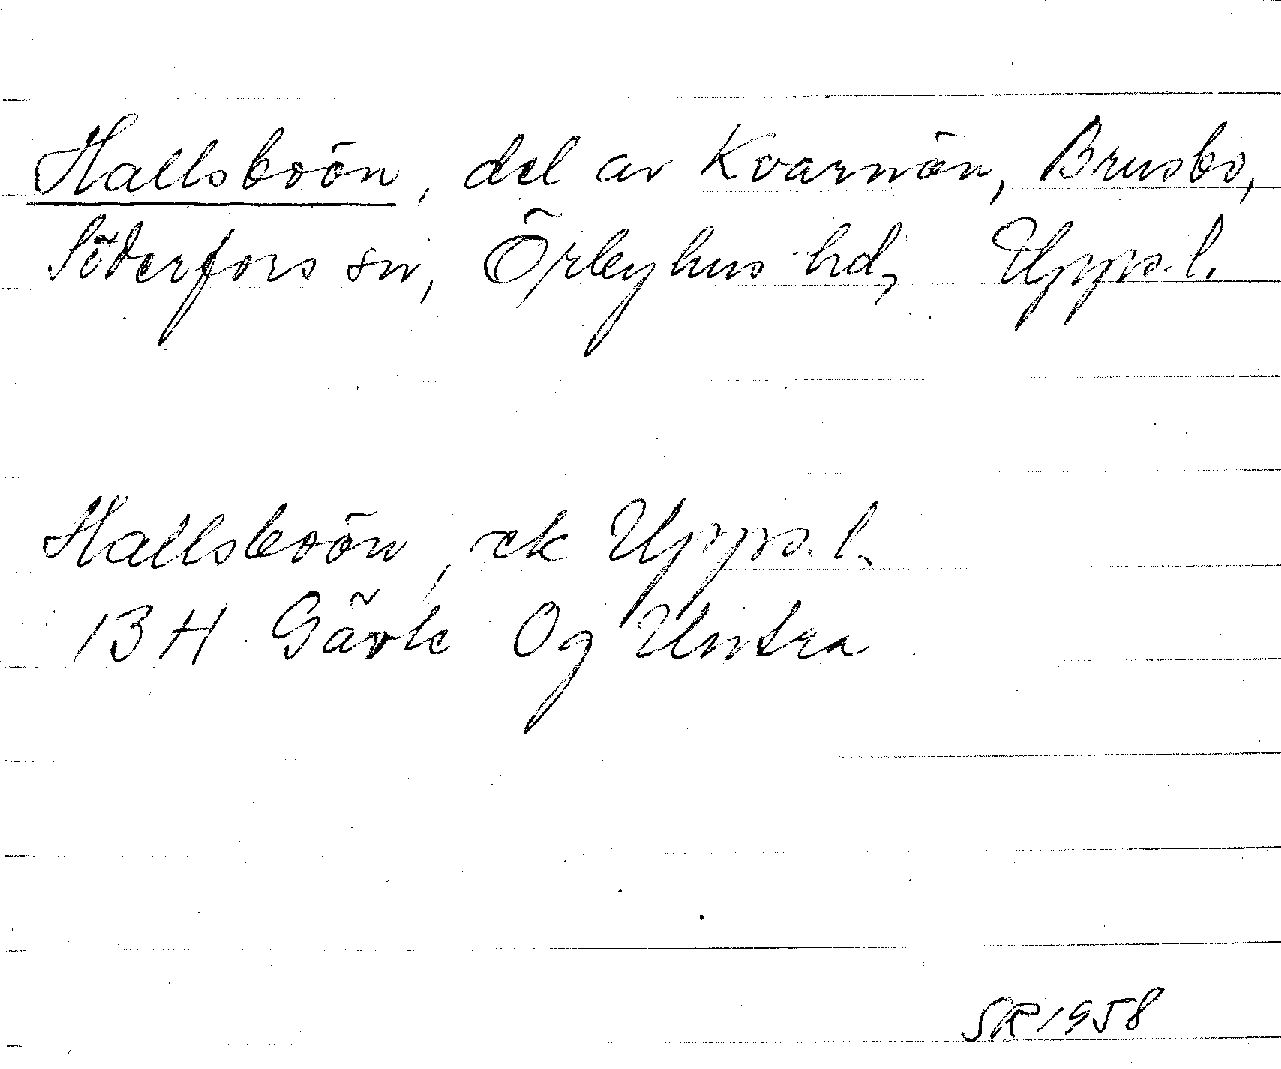 Hallsboön, del av Kvarnön, Brusbo,
Söderfors sn, Örbyhus hd, Upps.l.
Hallsboön, ek Upps.l.
13H Gävle Og Untra
SR 1958